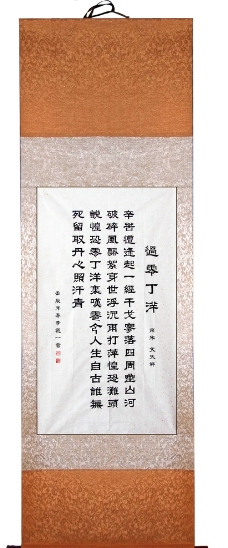 過零丁洋
南宋 文天祥
辛苦遭逢起一經干戈寥落四周星山河
破碎風飄絮身世浮沉雨打萍惶恐灘頭
說惶恐零丁洋裏嘆零丁人生自古誰無
死留取丹心照汗青